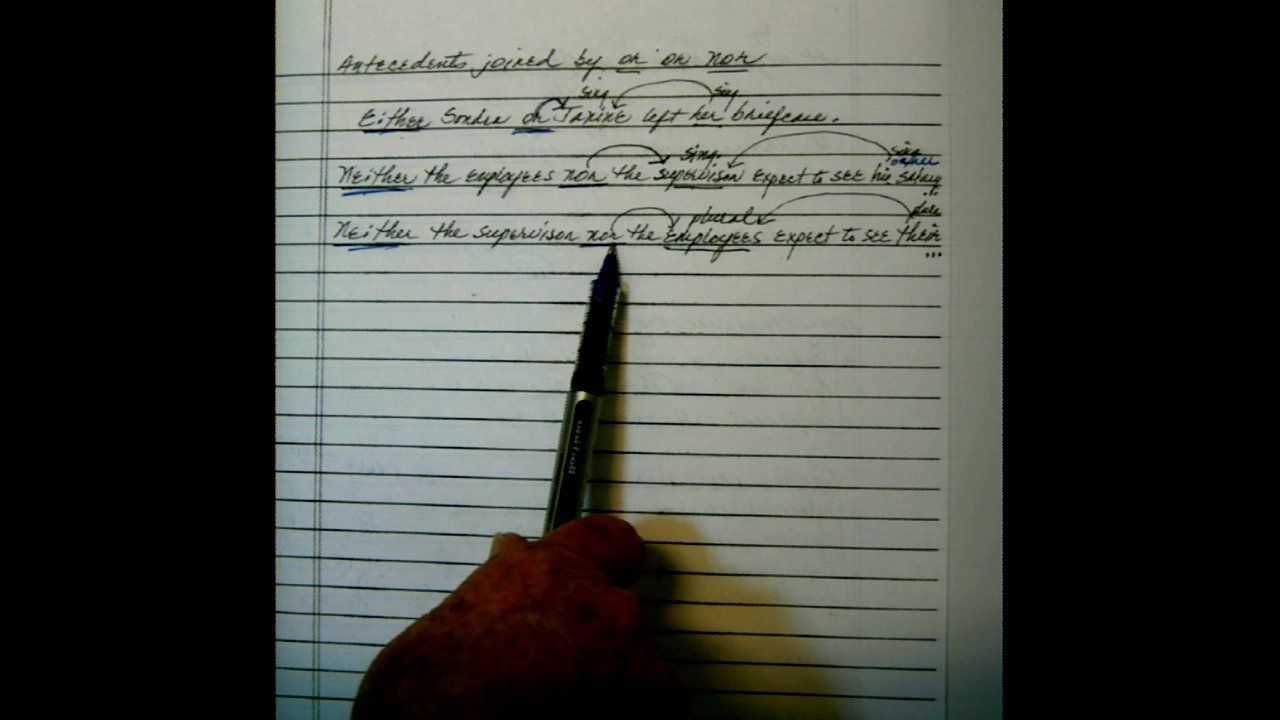 Antecedents joined by or or nor
sing sing
Either Sondra or Janine left her briefcase.
sing. sing
or her
Neither the employees nor the supervisor expect to see his salary
plural
Neither the supervisor nor the employees expect to see their
...
uni-ball